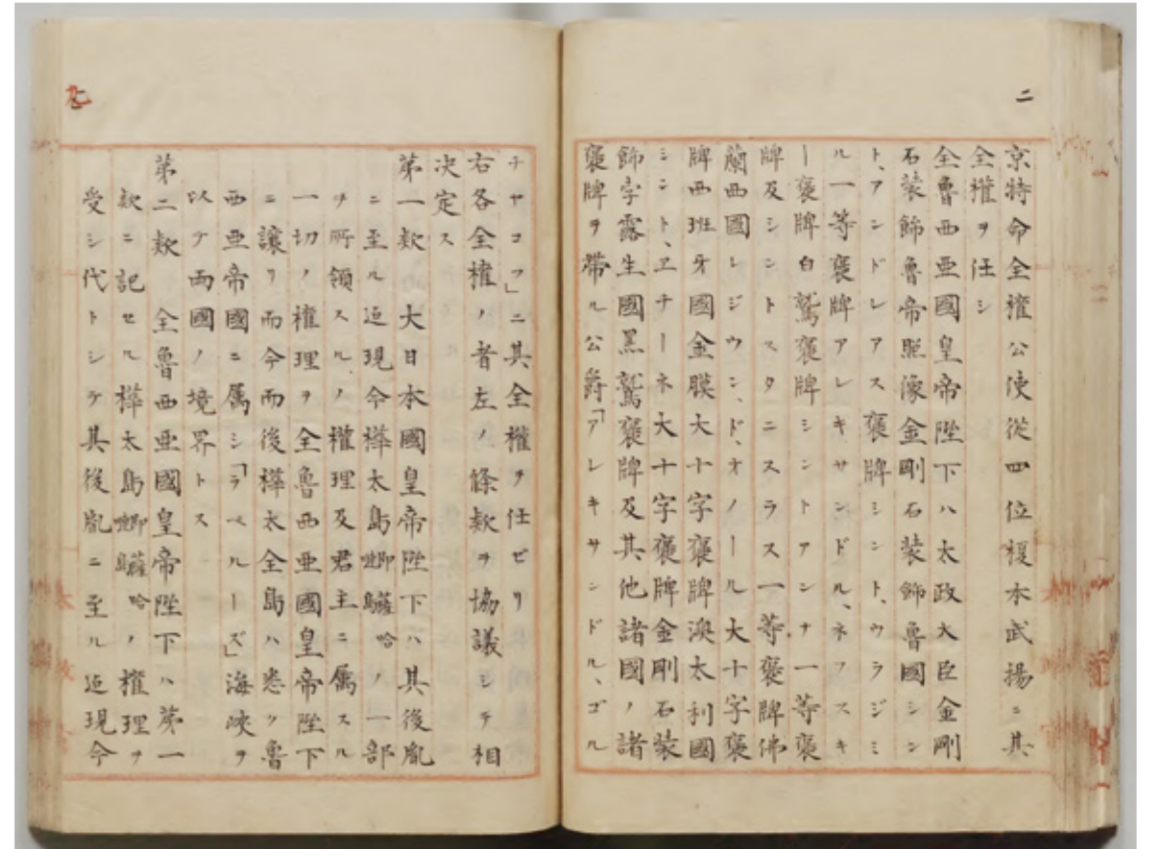 二
京特命全権公使従四位榎本武揚ニ其
全権ヲ任シ
全魯西亜國皇帝陛下ハ太政大臣金剛
石装飾魯帝照像金剛石装飾魯國シン
ト、アンドレアス褒牌シント、ウラジミ
ル一等褒牌アレキサンドル、ネフスキ
ー褒牌白鷲褒牌シントアンナ一等褒
牌及シントスタニスラス一等褒牌佛
蘭西國レジウン、ド、オノール大十字褒
牌西班牙國金膜大十字褒牌澳太利國
シント、エチーネ大十字褒牌金剛石装
飾孛露生國黒鷲褒牌及其他諸國ノ諸
褒牌ヲ帯ル公爵「アレキサンドル、ゴル
チヤコフ」ニ其全権ヲ任セリ
右各全権ノ者左ノ條款ヲ協議シテ相
决定ス
第一款 大日本國皇帝陛下ハ其後胤
ニ至ル迄現今樺太島即薩哈ノ一部
ヲ所領スルノ權理及君主ニ属スル
一切ノ權理ヲ全魯西亜國皇帝陛下
ニ讓リ而今而後樺太全島ハ悉ク魯
西亜帝國ニ属シ「ラペルーズ」海峡ヲ
以テ両國ノ境界トス
第二款 全魯西亜國皇帝陛下ハ第一
款ニ記セル樺太島即薩哈ノ權理ヲ
受シ代トシテ其後胤ニ至ル迄現今